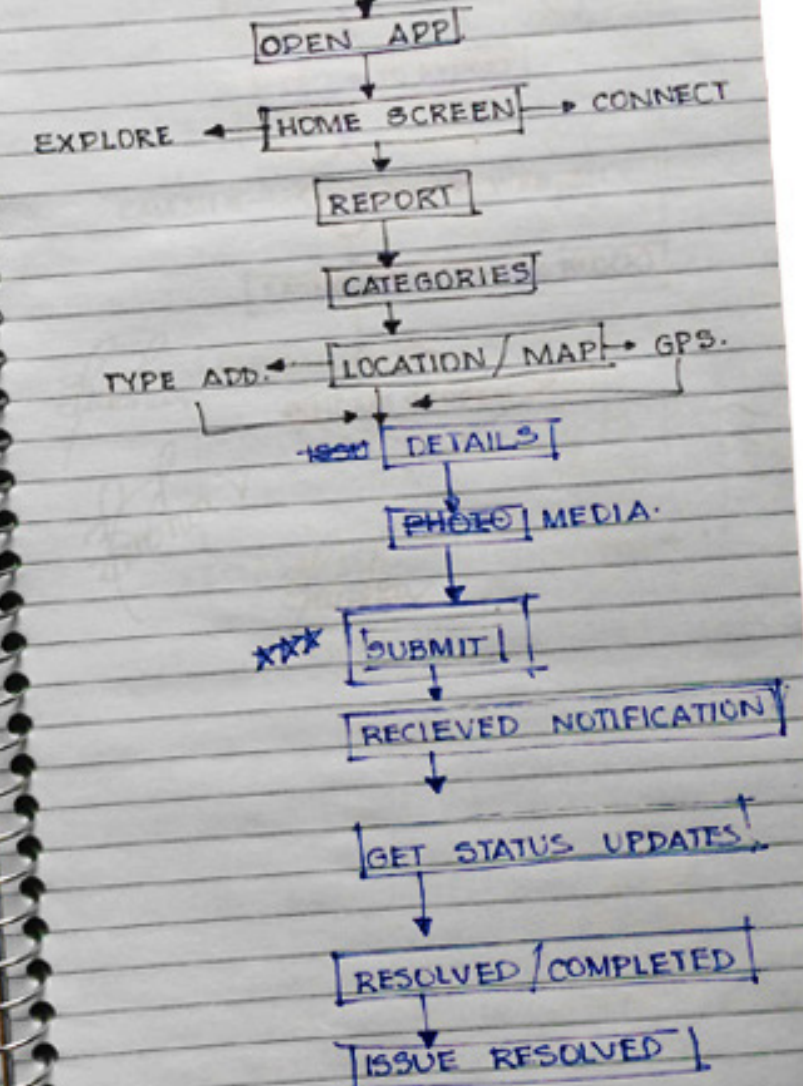 OPEN APP
EXPLORE HOME SCREEN CONNECT
REPORT
CATEGORIES
TYPE ADD. LOCATION/MAP GPS.
DETAILS
PHOTO MEDIA.
SUBMIT
RECIEVED NOTIFICATION
GET STATUS UPDATES
RESOLVED/COMPLETED
ISSUE RESOLVED